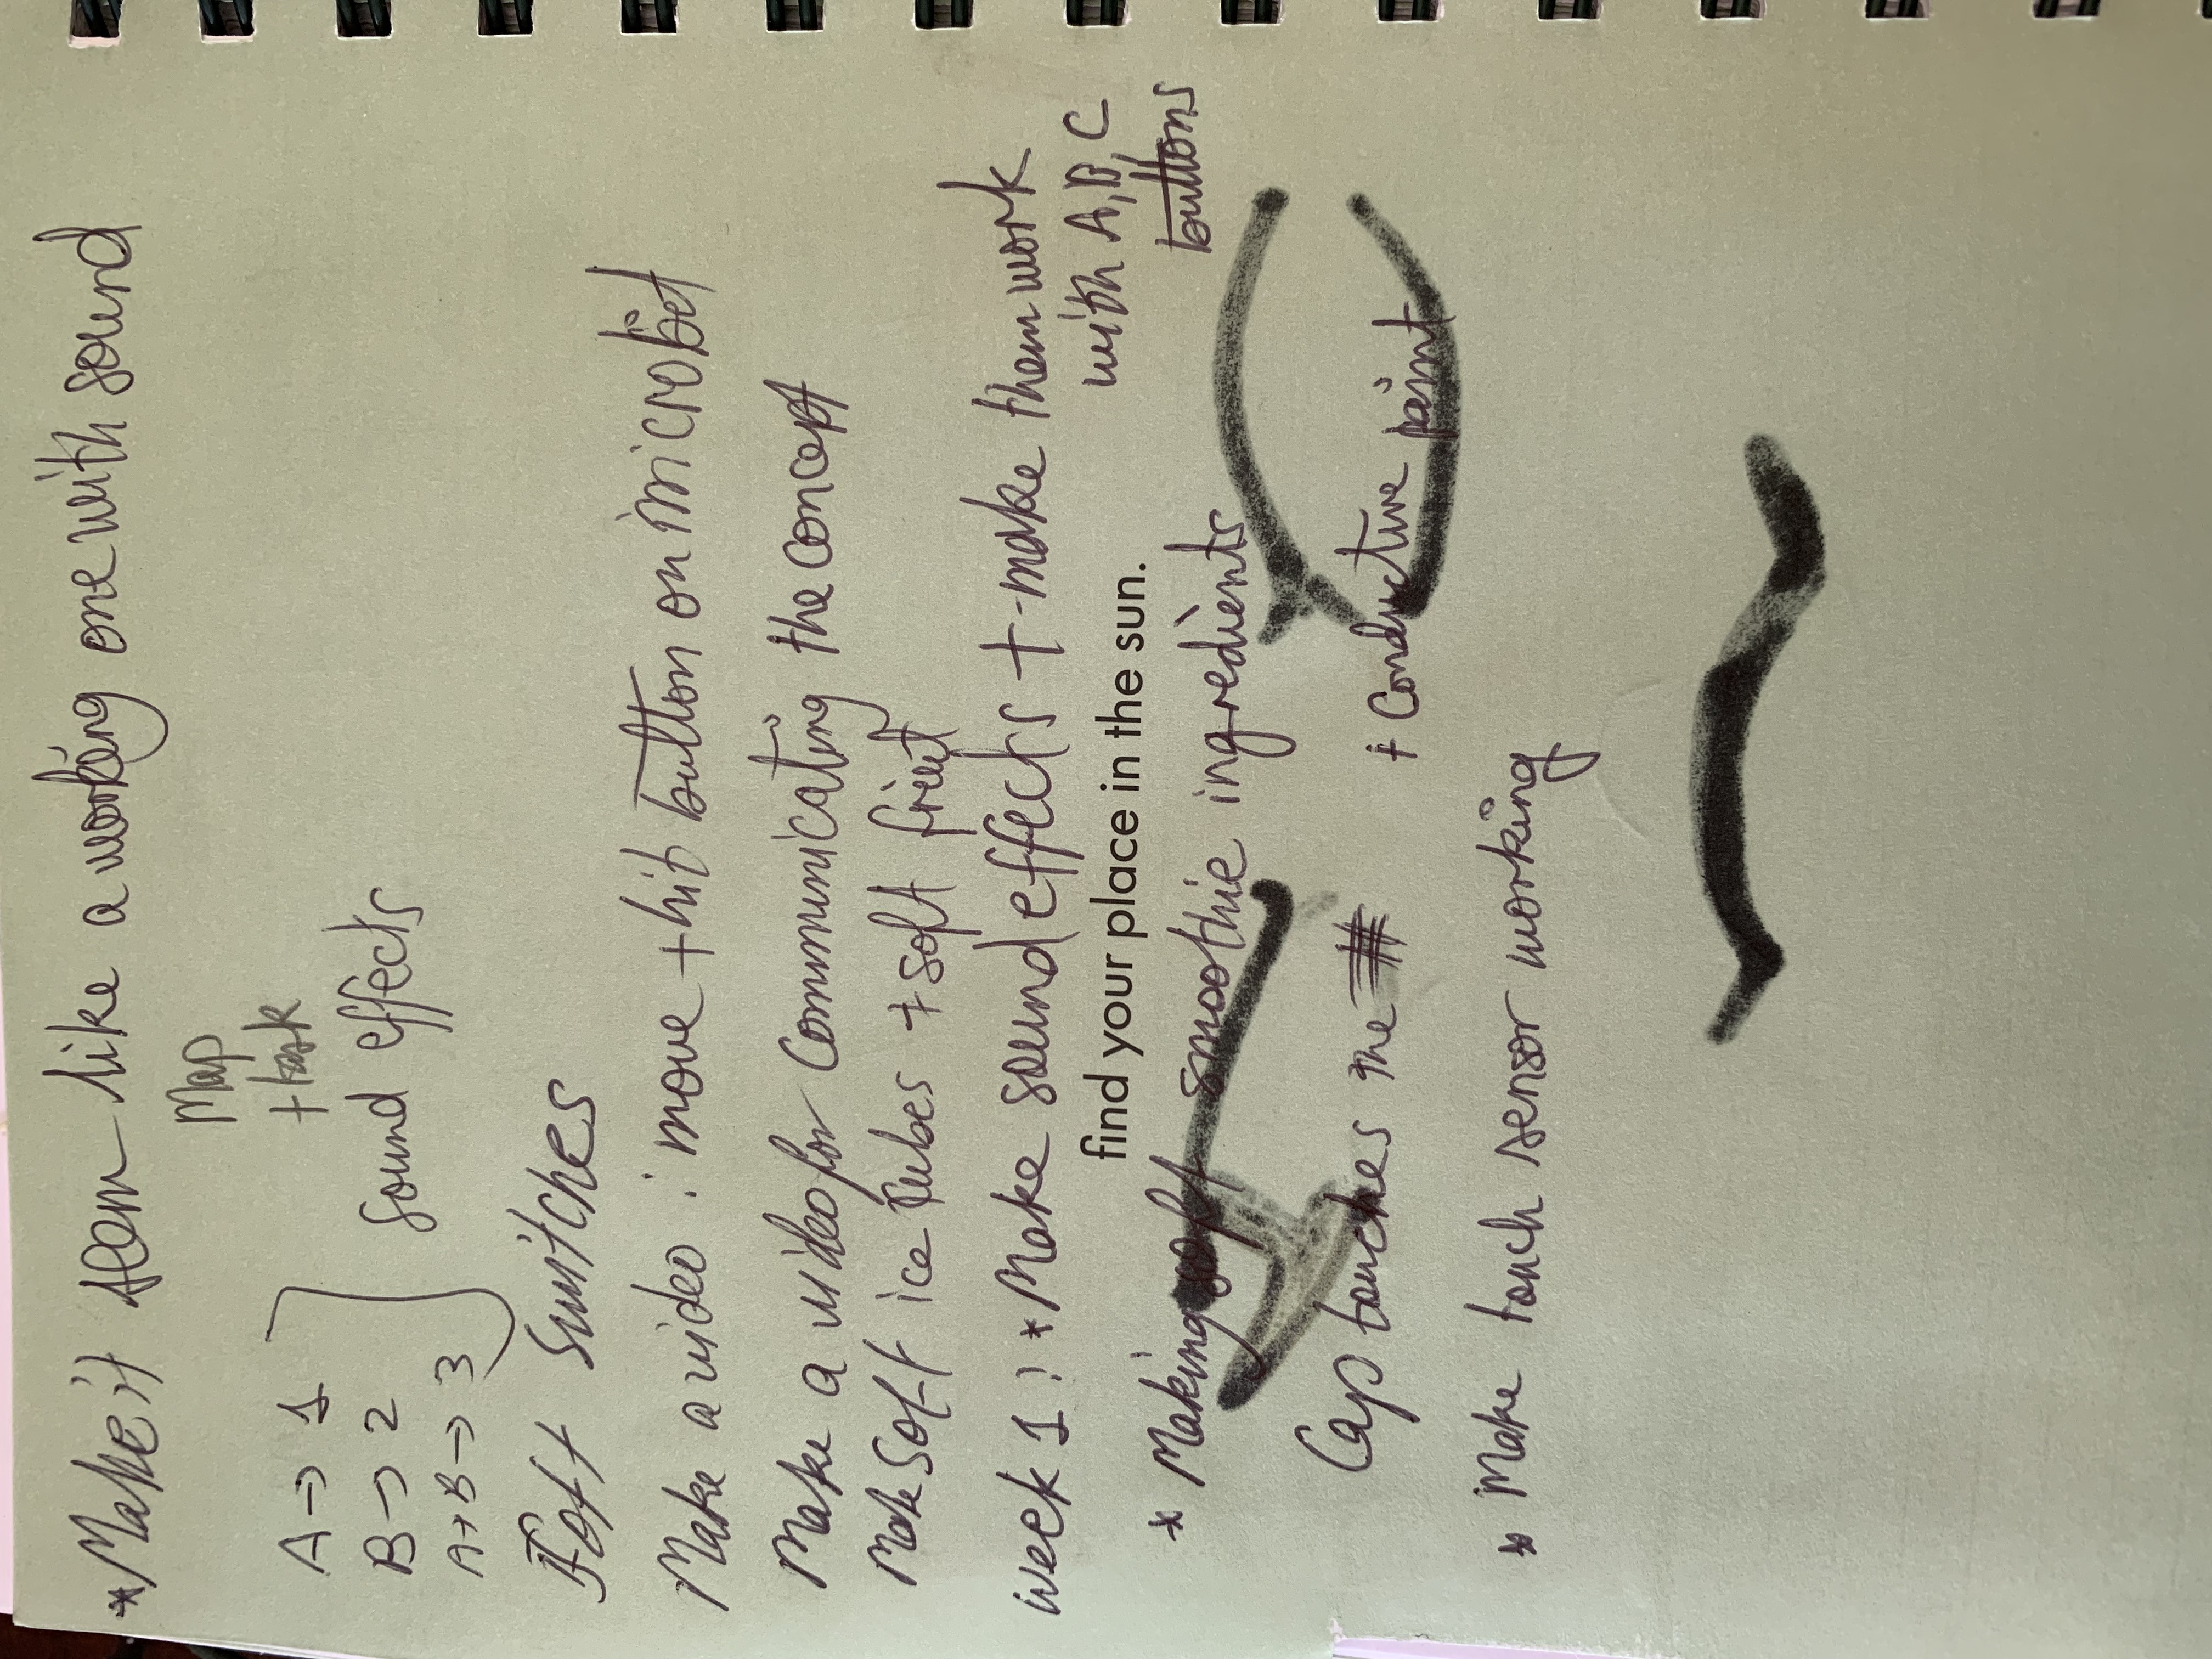 * Make it seem like a working one with sound
Map
+ task
A → 1
B → 2
A+B → 3
sound effects
Soft Switches
Make a video : move + hit button on microbit
Make a video for communicating the concept
Make soft ice cubes + soft fruit
week 1 : * Make sound effects + make them work
with A, B, C
buttons
find your place in the sun.
* Making soft smoothie ingredients
Cap touches me
+ Conductive paint
* Make touch sensor working